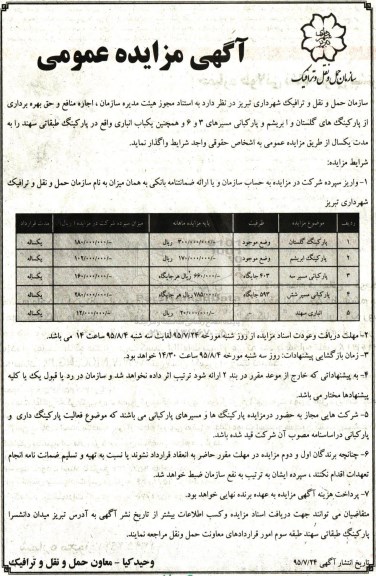 سازمان حمل و نقل و ترافیک
آگهی مزایده عمومی
سازمان حمل و نقل و ترافیک شهرداری تبریز در نظر دارد به استناد مجوز هیئت مدیره سازمان ، اجاره منافع و حق بهره برداری
از پارکینگ های گلستان و ابریشم و پارکبانی مسیرهای ۳ و ۶ و همچنین یکباب انباری واقع در پارکینگ طبقاتی سهند را به
مدت یکسال از طریق مزایده عمومی به اشخاص حقوقی واجد شرایط واگذار نماید.
شرایط مزایده:
۱- واریز سپرده شرکت در مزایده به حساب سازمان و یا ارائه ضمانتنامه بانکی به همان میزان به نام سازمان حمل و نقل و ترافیک
شهرداری تبریز
ردیف موضوع مزایده ظرفیت پایه مزایده ماهانه میزان سپرده شرکت در مزایده (ریال) مدت قرارداد
۱ پارکینگ گلستان وضع موجود ۳۰۰/۰۰۰/۰۰۰/- ریال ۱۸۰/۰۰۰/۰۰۰/- یکساله
۲ پارکینگ ابریشم وضع موجود ۱۷۰/۰۰۰/۰۰۰/- ریال ۱۰۲/۰۰۰/۰۰۰/- یکساله
۳ پارکبانی مسیر سه ۴۰۳ جایگاه ۶۶۰/۰۰۰/- ریال هر جایگاه ۱۶۰/۰۰۰/۰۰۰/- یکساله
۴ پارکبانی مسیر شش ۵۹۳ جایگاه ۷۸۵/۰۰۰/- ریال هر جایگاه ۲۸۰/۰۰۰/۰۰۰/- یکساله
۵ انباری سهند ۲۰/۰۰۰/۰۰۰/- ریال ۱۲/۰۰۰/۰۰۰/- یکساله
۲- مهلت دریافت وعودت اسناد مزایده از روز شنبه مورخه ۹۵/۷/۲۴ لغایت سه شنبه ۹۵/۸/۴ ساعت ۱۴ می باشد.
۳- زمان بازگشایی پیشنهادات: روز سه شنبه مورخه ۹۵/۸/۴ ساعت ۱۴/۳۰ خواهد بود.
۴- به پیشنهاداتی که خارج از موعد مقرر در بند ۲ ارائه شود ترتیب اثر داده نخواهد شد و سازمان در رد یا قبول یک یا کلیه
پیشنهادها مختار می باشد.
۵- شرکت هایی مجاز به حضور درمزایده پارکینگ ها و مسیرهای پارکبانی می باشند که موضوع فعالیت پارکینگ داری و
پارکبانی دراساسنامه مصوب آن شرکت قید شده باشد.
۶- چنانچه برندگان اول و دوم مزایده در مهلت مقرر حاضر به انعقاد قرارداد نشوند یا نسبت به تهیه و تسلیم ضمانت نامه انجام
تعهدات اقدام نکنند ، سپرده ایشان به ترتیب به نفع سازمان ضبط خواهد شد.
۷- پرداخت هزینه آگهی مزایده به عهده برنده نهایی خواهد بود.
متقاضیان می توانند جهت دریافت اسناد مزایده وکسب اطلاعات بیشتر از تاریخ نشر آگهی به آدرس تبریز میدان دانشسرا
پارکینگ طبقاتی سهند طبقه سوم امور قراردادهای معاونت حمل ونقل مراجعه نمایند.
تاریخ انتشار آگهی ۹۵/۷/۲۴
وحید کیا - معاون حمل و نقل و ترافیک